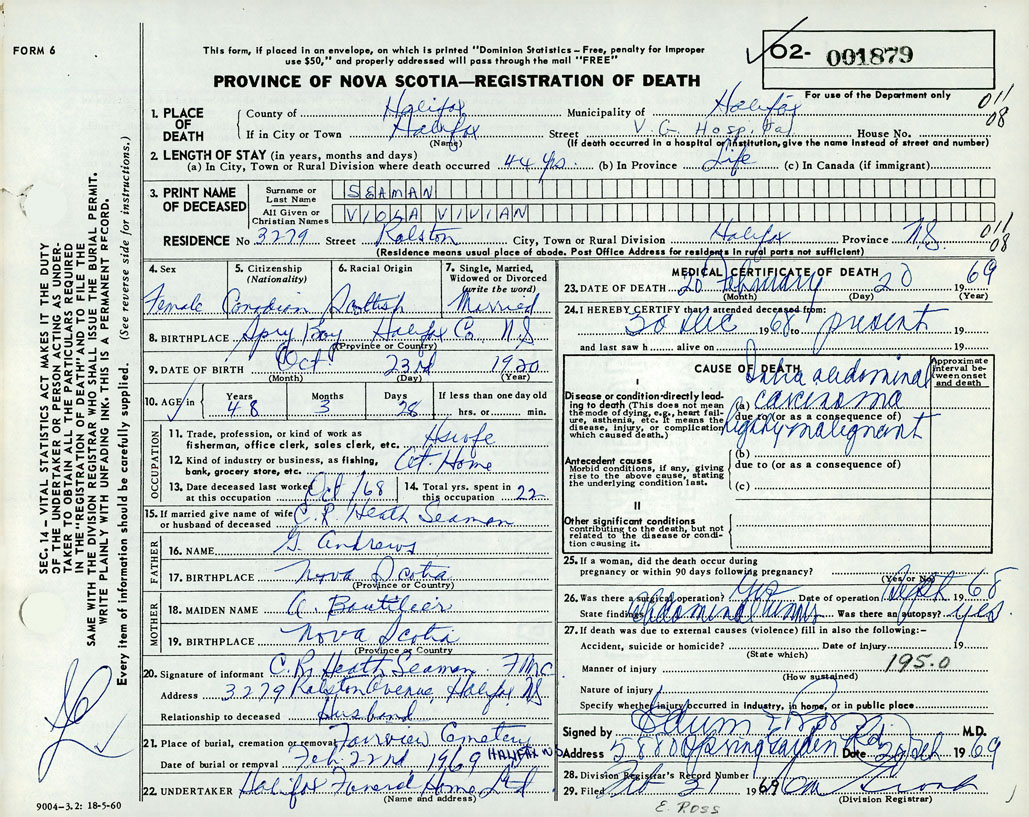 FORM 6
This form, if placed in an envelope, on which is printed "Dominion Statistics – Free, penalty for improper
use $50," and properly addressed will pass through the mail "FREE"
PROVINCE OF NOVA SCOTIA—REGISTRATION OF DEATH
02- 001879
For use of the Department only
011
08
1. PLACE OF DEATH County of Halifax Municipality of Halifax
If in City or Town Halifax Street V. G. Hospital House No.
(Name) (If death occurred in a hospital or institution, give the name instead of street and number)
2. LENGTH OF STAY (in years, months and days)
(a) In City, Town or Rural Division where death occurred 44 yrs. (b) In Province Life (c) In Canada (if immigrant)
3. PRINT NAME OF DECEASED Surname or Last Name SEAMAN
All Given or Christian Names VIOLA VIVIAN
RESIDENCE No 3279 Street Ralston City, Town or Rural Division Halifax Province N.S. 011
08
(Residence means usual place of abode. Post Office Address for residents in rural parts not sufficient)
4. Sex Female
5. Citizenship (Nationality) Canadian
6. Racial Origin Scottish
7. Single, Married, Widowed or Divorced (write the word) Married
8. BIRTHPLACE Spry Bay Halifax Co N.S
(Province or Country)
9. DATE OF BIRTH Oct 23rd 1920
(Month) (Day) (Year)
10. AGE in Years 48 Months 3 Days 28 If less than one day old
hrs. or min.
OCCUPATION
11. Trade, profession, or kind of work as
fisherman, office clerk, sales clerk, etc. Hswife
12. Kind of industry or business, as fishing,
bank, grocery store, etc. At. Home
13. Date deceased last worked
at this occupation Oct /68
14. Total yrs. spent in
this occupation 22
15. If married give name of wife
or husband of deceased C. R. Heath Seaman
FATHER
16. NAME G. Andrews
17. BIRTHPLACE Nova Scotia
(Province or Country)
MOTHER
18. MAIDEN NAME A. Boutilier
19. BIRTHPLACE Nova Scotia
(Province or Country
20. Signature of informant C. R. Heath Seaman
Address 3279 Ralston Avenue, Halifax NS
Relationship to deceased Husband
21. Place of burial, cremation or removal Fairview Cemetery
Date of burial or removal Feb 22nd 1969 HALIFAX NS
22. UNDERTAKER Halifax Funeral Home Ltd
(Name and address)
MEDICAL CERTIFICATE OF DEATH
23. DATE OF DEATH 20 February 20 1969
(Month) (Day) (Year)
24. I HEREBY CERTIFY that I attended deceased from:
30 Dec 1968 to present 19
and last saw h alive on 19
CAUSE OF DEATH
Approximate interval between onset and death
I
Disease or condition directly leading to death (This does not mean the mode of dying, e.g., heart failure, asthenia, etc. It means the disease, injury, or complication which caused death.)
Intra abdominal
(a) carcinoma
due to (or as a consequence of)
highly malignant
(b)
Antecedent causes
Morbid conditions, if any, giving rise to the above cause, stating the underlying condition last.
due to (or as a consequence of)
(c)
II
Other significant conditions
contributing to the death, but not related to the disease or condition causing it.
25. If a woman, did the death occur during
pregnancy or within 90 days following pregnancy?
(Yes or No)
26. Was there a surgical operation? Yes Date of operation Sept 68
State findings abdominal Was there an autopsy? yes
27. If death was due to external causes (violence) fill in also the following:–
Accident, suicide or homicide? Date of injury 19
(State which)
Manner of injury 195.0
(How sustained)
Nature of injury
Specify whether injury occurred in industry, in home, or in public place
Signed by M.D.
Address 5880 Spring Garden Rd Date 20 Feb 1969
28. Division Registrar's Record Number
29. Filed Feb 21 1969
(Division Registrar)
E. ROSS
SEC. 14 – VITAL STATISTICS ACT MAKES IT THE DUTY
OF THE UNDERTAKER OR PERSON ACTING AS UNDER-
TAKER TO OBTAIN ALL THE PARTICULARS REQUIRED
IN THE "REGISTRATION OF DEATH" AND TO FILE THE
SAME WITH THE DIVISION REGISTRAR WHO SHALL ISSUE THE BURIAL PERMIT.
WRITE PLAINLY WITH UNFADING INK. THIS IS A PERMANENT RECORD.
Every item of information should be carefully supplied. (See reverse side for instructions.)
9004-3.2: 18-5-60